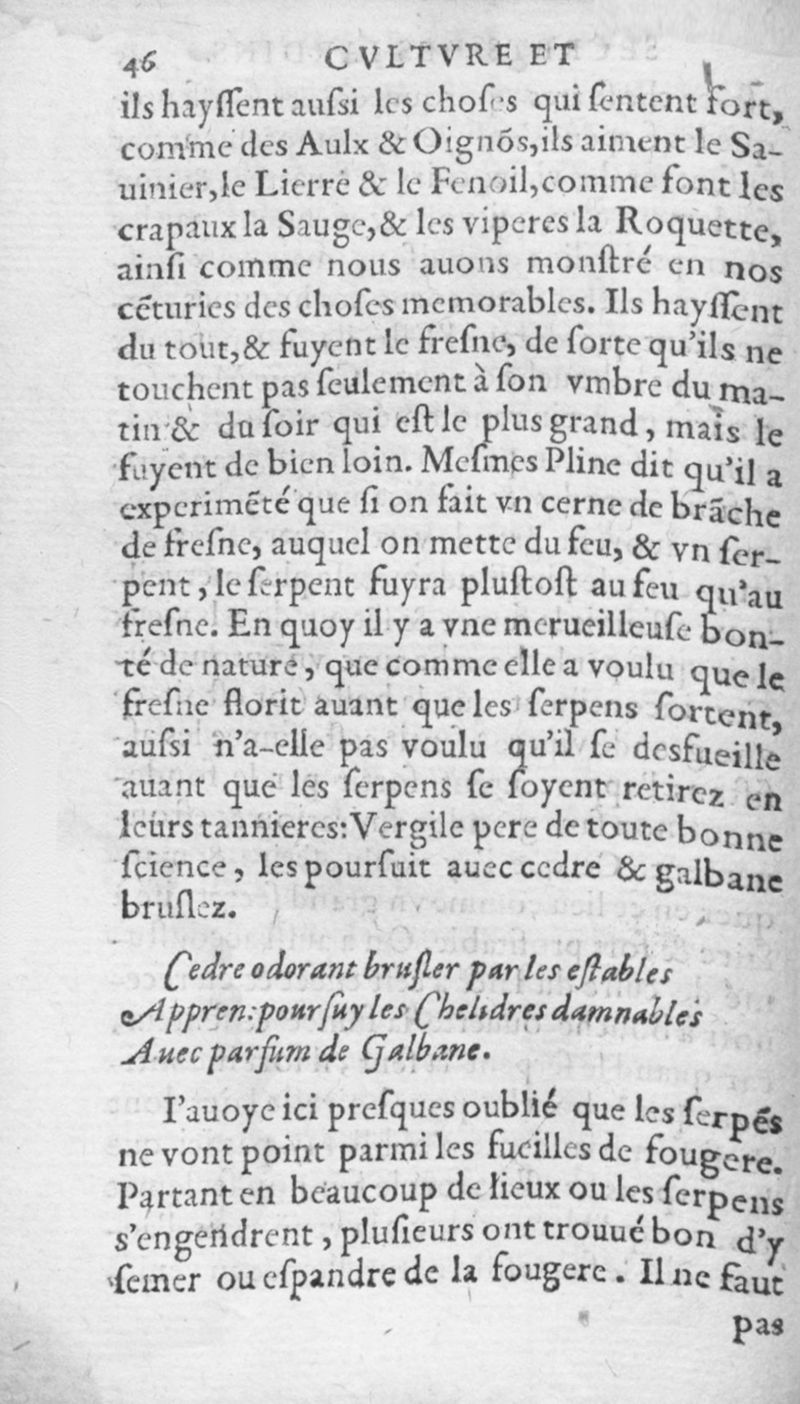 46 CVLTVRE ET
ils hayſſent auſsi les choſes qui ſentent fort,
comme des Aulx & Oignõs, ils aiment le Sa-
uinier, le Lierre & le Fenoil, comme font les
crapaux la Sauge, & les viperes la Roquette,
ainſi comme nous auons monſtré en nos
cẽturies des choſes memorables. Ils hayſſent
du tout, & fuyent le freſne, de ſorte qu'ils ne
touchent pas ſeulement à ſon vmbre du ma-
tin & du ſoir qui eſt le plus grand, mais le
fuyent de bien loin. Meſmes Pline dit qu'il a
experimẽté que ſi on fait vn cerne de brãche
de freſne, auquel on mette du feu, & vn ſer-
pent, le ſerpent fuyra pluſtoſt au feu qu'au
freſne. En quoy il y a vne merueilleuſe bon-
té de nature, que comme elle a voulu que le
freſne florit auant que les ſerpens ſortent,
auſsi n'a-elle pas voulu qu'il ſe desfueille
auant que les ſerpens ſe ſoyent retirez en
leurs tannieres: Vergile pere de toute bonne
ſcience, les pourſuit auec cedre & galbane
bruſlez.
Cedre odorant bruſler par les eſtables
Appren: pourſuy les Chelidres damnables
Auec parfum de Galbane.
I'auoye ici preſques oublié que les ſerpẽs
ne vont point parmi les fueilles de fougere.
Partant en beaucoup de lieux ou les ſerpens
s'engendrent, pluſieurs ont trouué bon d'y
ſemer ou eſpandre de la fougere. Il ne faut
pas